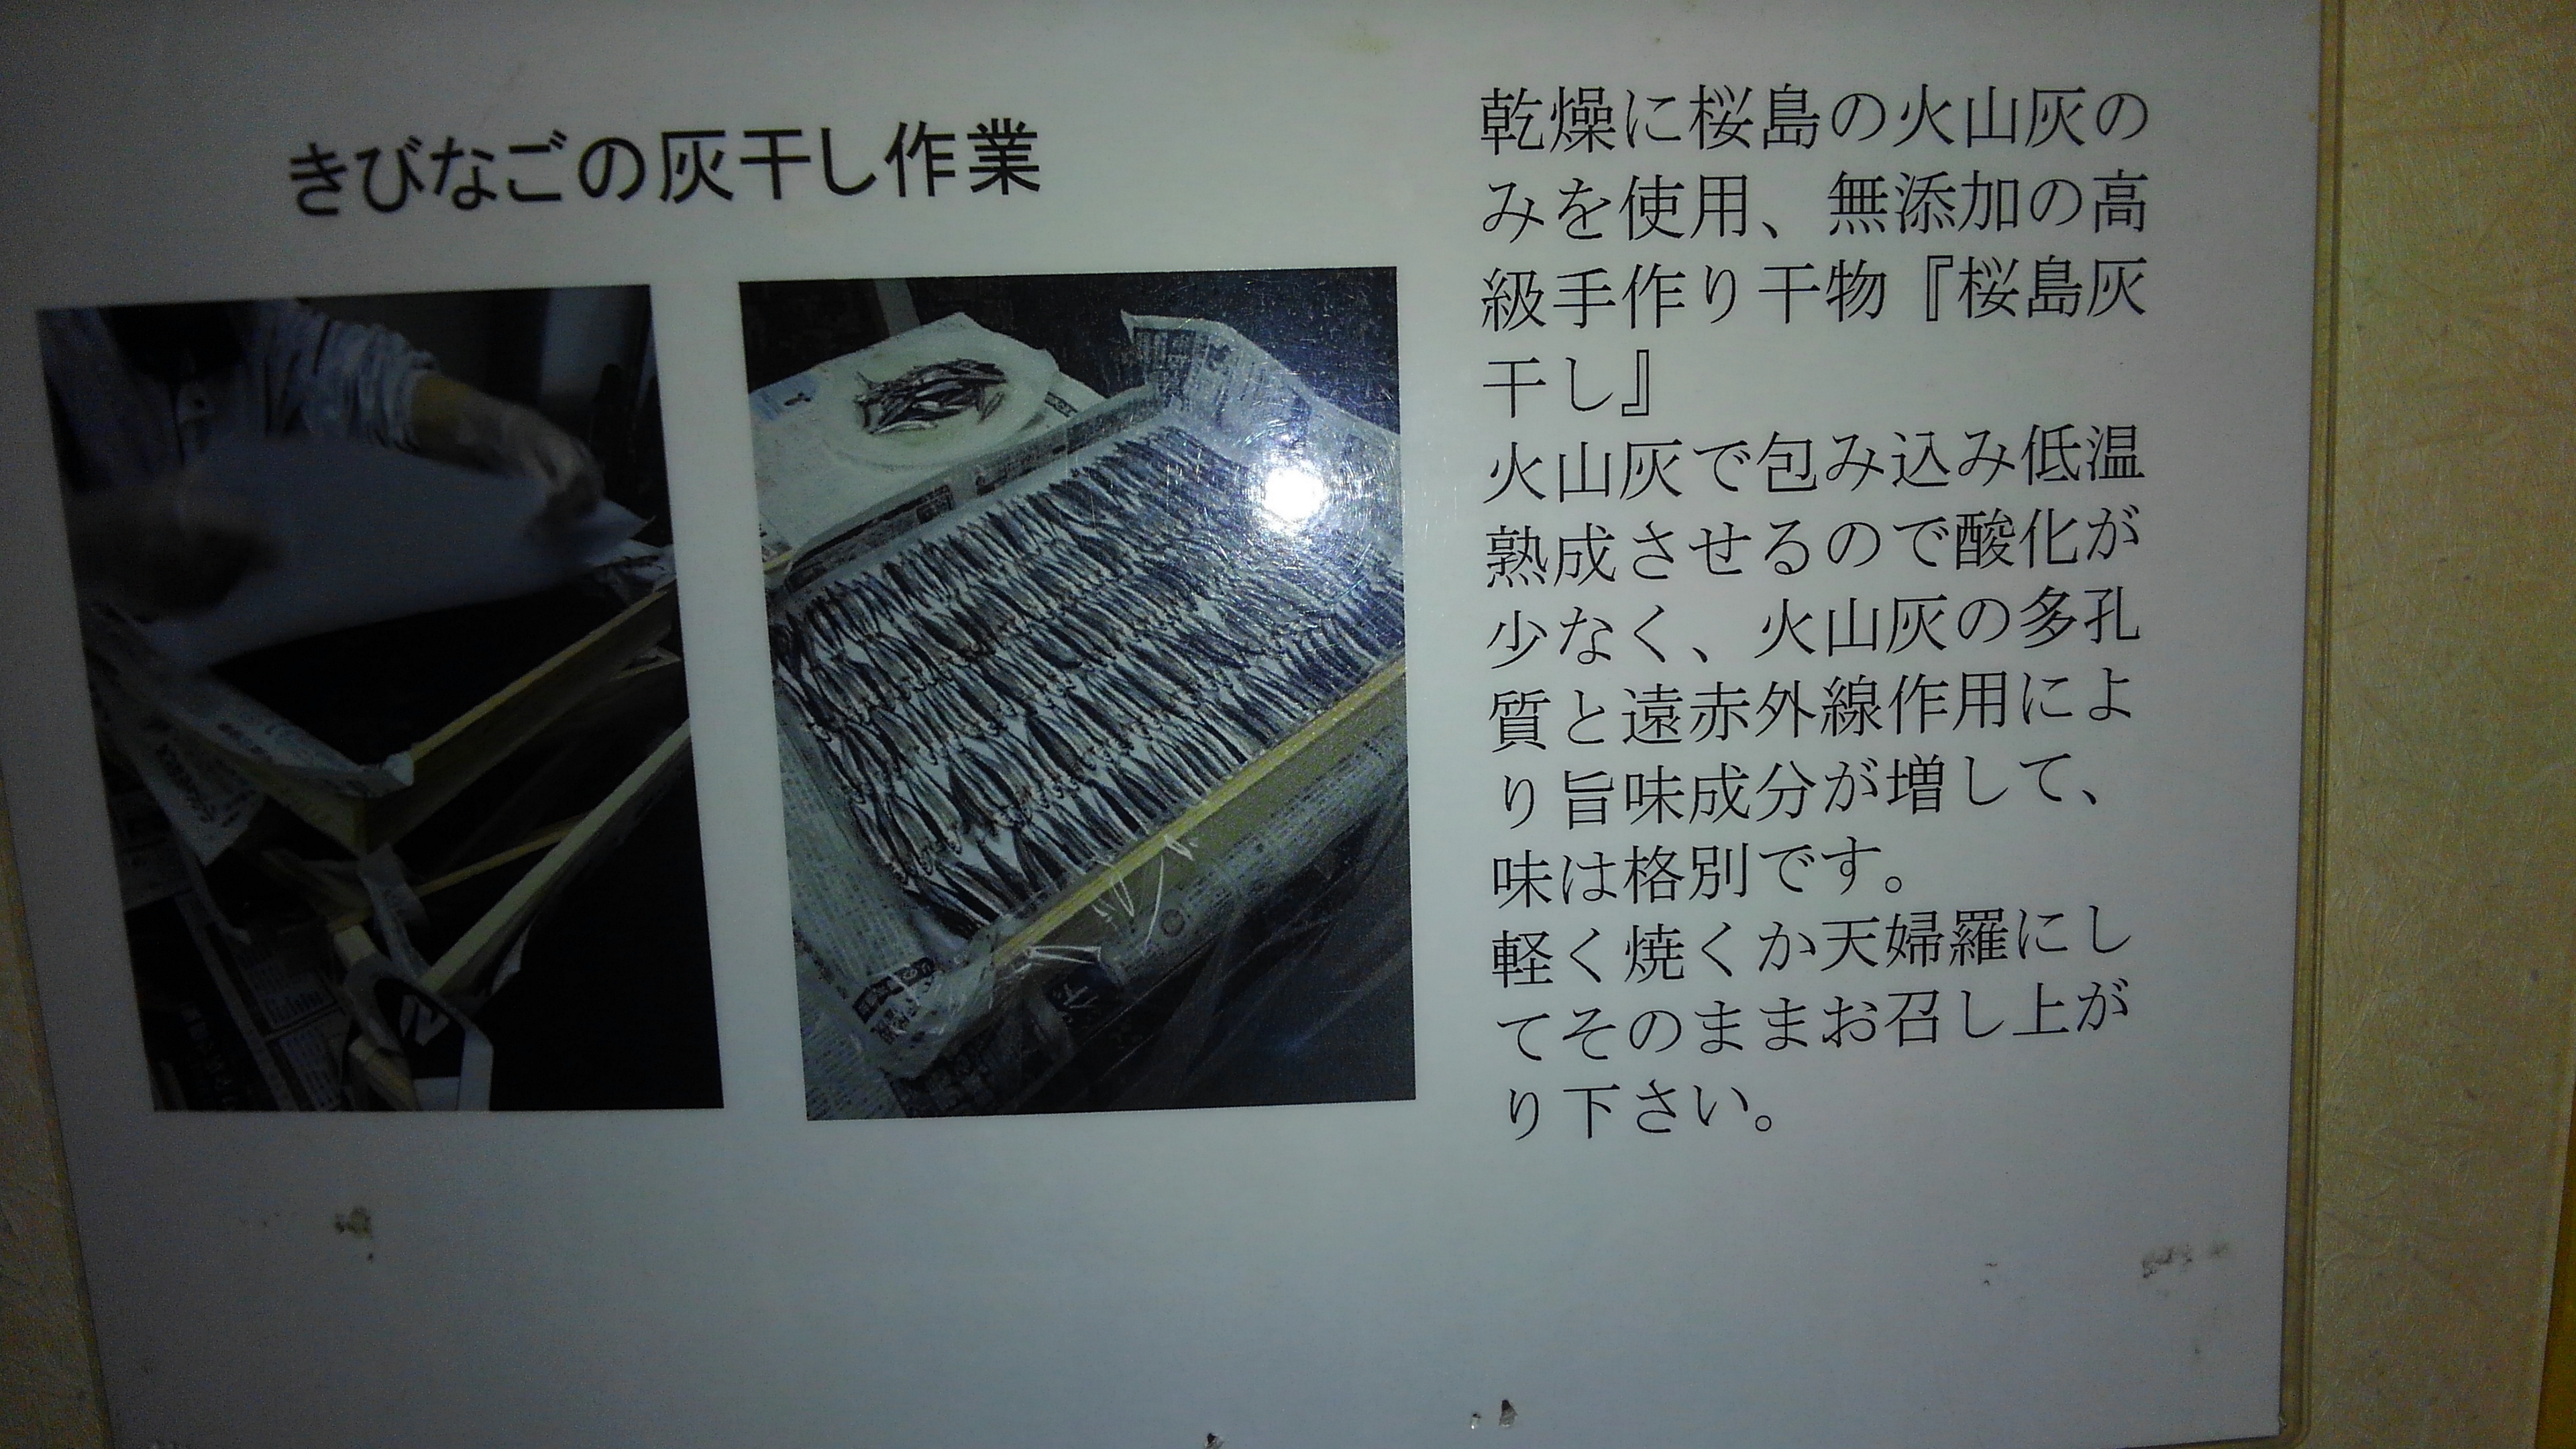 きびなごの灰干し作業
乾燥に桜島の火山灰の
みを使用、無添加の高
級手作り干物『桜島灰
干し』
火山灰で包み込み低温
熟成させるので酸化が
少なく、火山灰の多孔
質と遠赤外線作用によ
り旨味成分が増して、
味は格別です。
軽く焼くか天婦羅にし
てそのままお召し上が
り下さい。